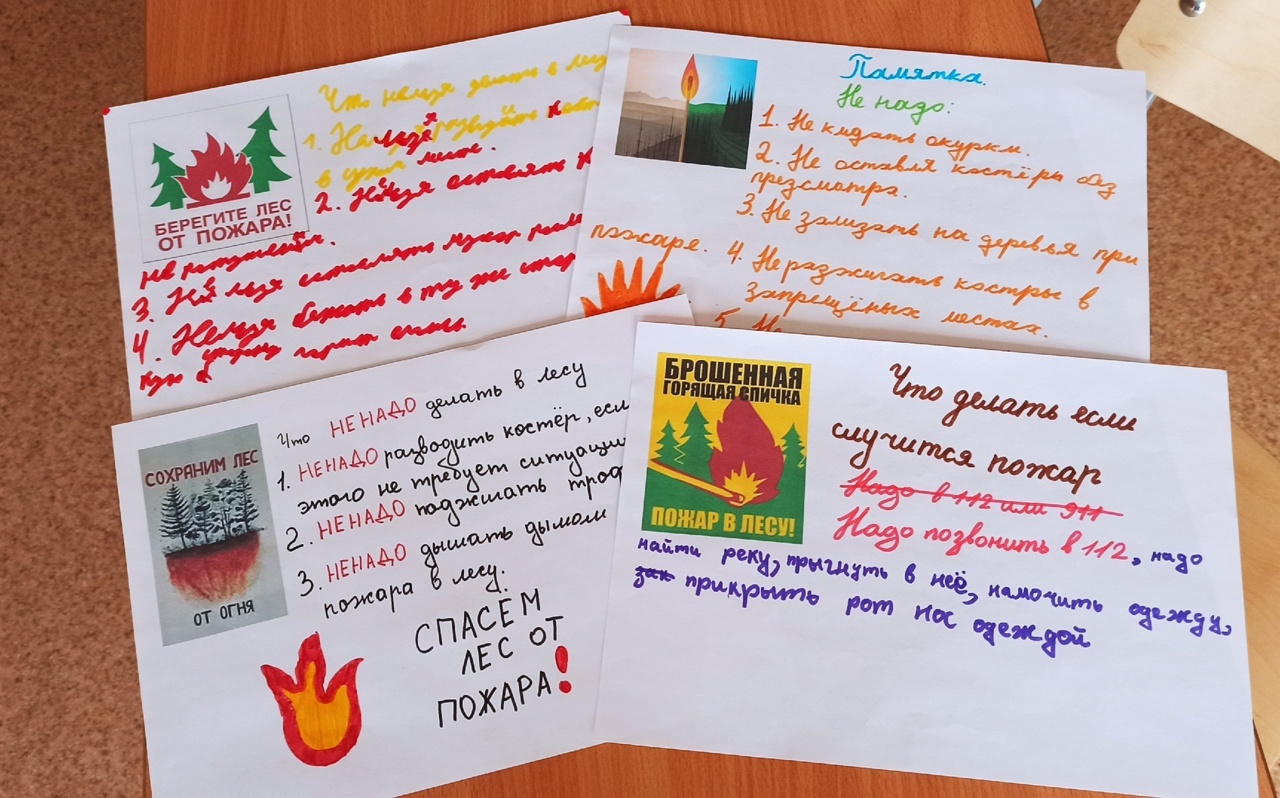 БЕРЕГИТЕ ЛЕС
ОТ ПОЖАРА!
Что нельзя делать в лесу
1. Нельзя разводить
в сухом месте.
2. Нельзя оставлять
не потушен.
3. Нельзя оставлять мусор
4. Нельзя бежать в ту же
кую сторону горит огонь.
Памятка.
Не надо:
1. Не кидать окурки.
2. Не оставля костёры без
презсмотра.
3. Не зализать на деревья при
пожаре.
4. Не разжигать костры в
запрещёных местах.
5. Не
СОХРАНИМ ЛЕС
ОТ ОГНЯ
Что НЕНАДО делать в лесу
1. НЕНАДО разводить костёр, если
этого не требует ситуация
2. НЕНАДО поджигать
3. НЕНАДО дышать дымом
пожара в лесу.
СПАСЁМ
ЛЕС ОТ
ПОЖАРА!
БРОШЕННАЯ
ГОРЯЩАЯ СПИЧКА
ПОЖАР В ЛЕСУ!
Что делать если
случится пожар
Надо в 112 или 911
Надо позвонить в 112, надо
найти реку, прыгнуть в неё, намочить одежду,
зак прикрыть рот нос одеждой